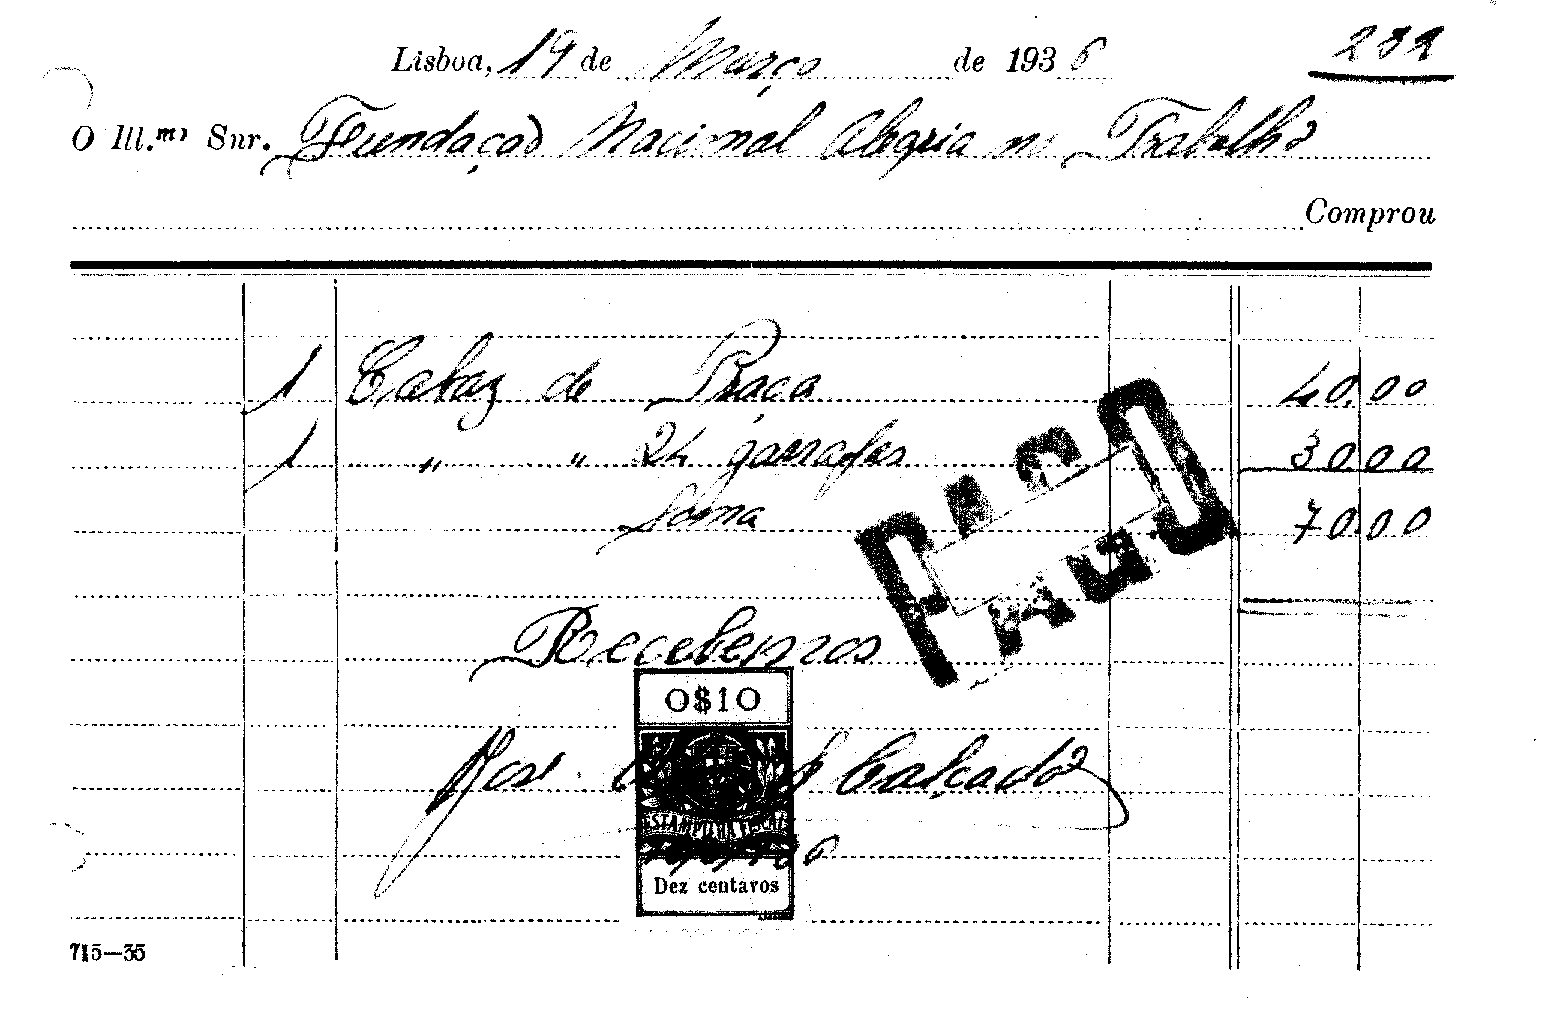 Lisboa, 19 de Março de 1936
232
O Ill.mº Snr. Fundação Nacional Alegria no Trabalho
Comprou
1 Cabaz de Praça 40.00
1 " " 24 garrafas 30.00
Soma 70.00
PAGO
Recebemos
0$10
José Calçado
ESTAMPILHA FISCAL
Dez centavos
715—35